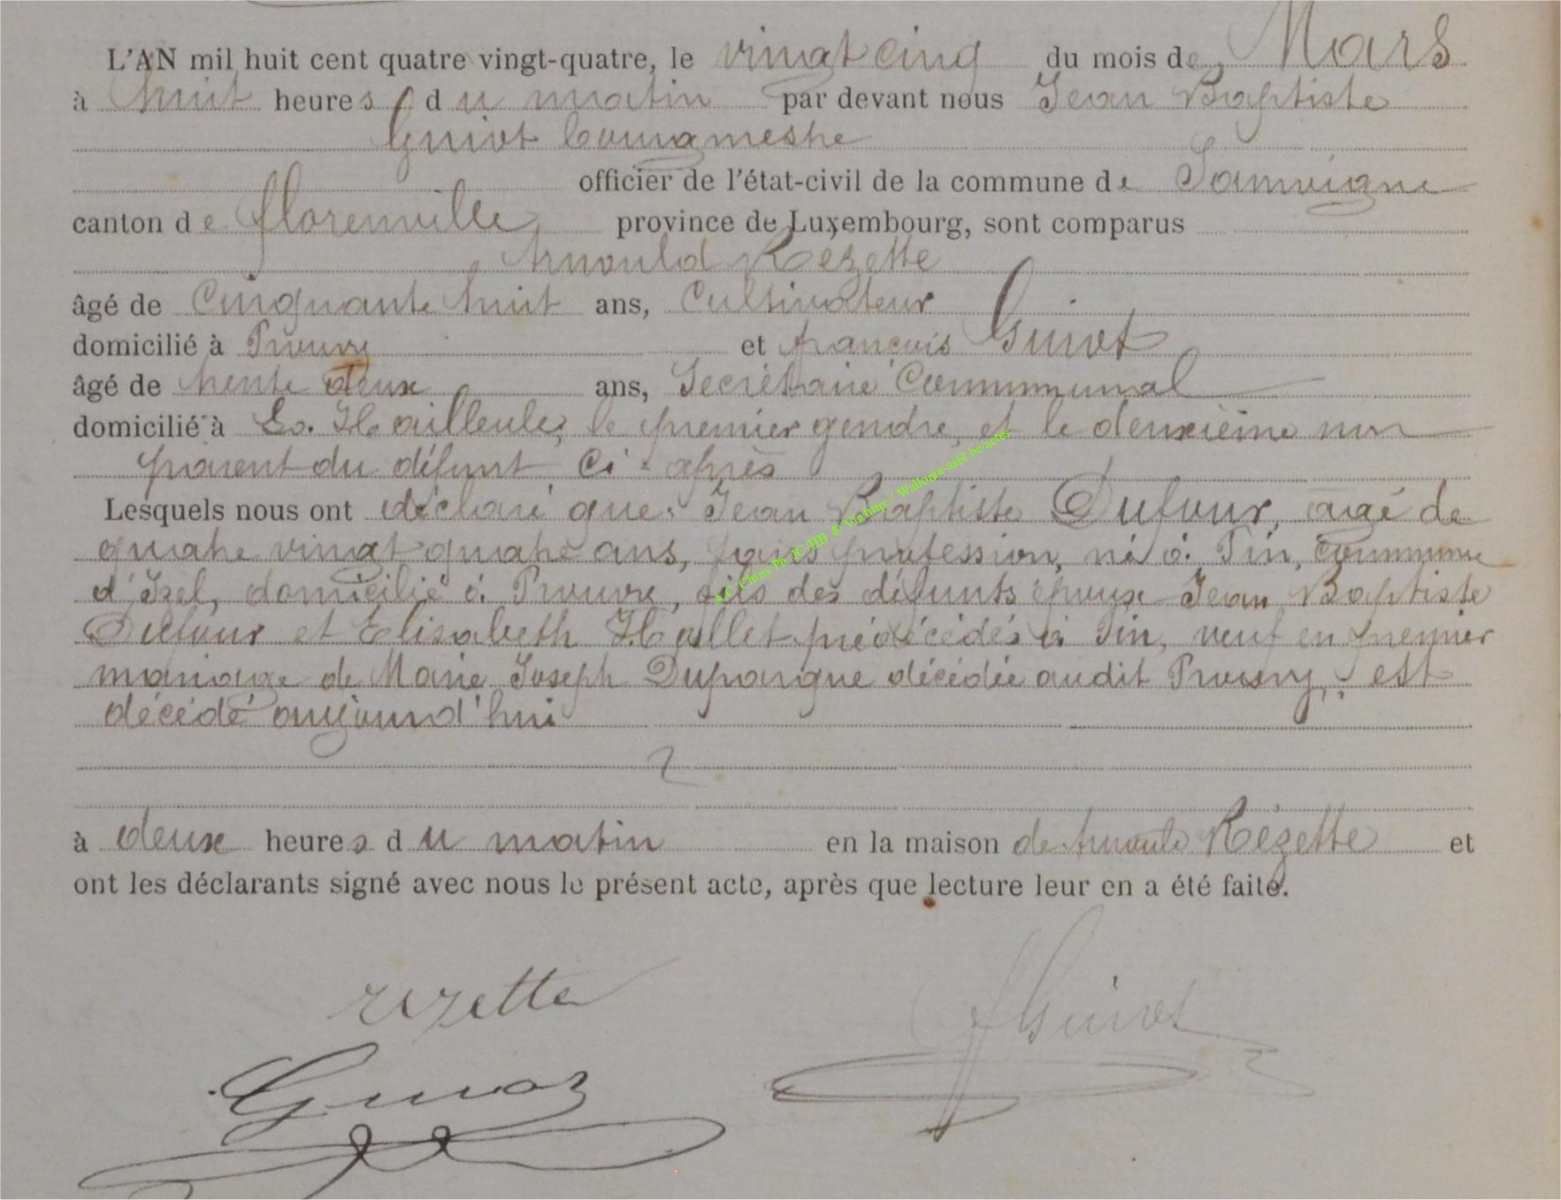 L'AN mil huit cent quatre vingt-quatre, le vingt cinq du mois de Mars
à huit heures du matin par devant nous Jean Baptiste
Guiot bourgmestre
officier de l'état-civil de la commune de Jamoigne
canton de florenville province de Luxembourg, sont comparus
Arnould Rézette
âgé de Cinquante huit ans, Cultivateur
domicilié à Prouvy et françois Guiot
âgé de trente deux ans, Secrétaire Communal
domicilié à La Hailleule, le premier gendre, et le deuxième non
parent du défunt ci-après
Lesquels nous ont déclaré que Jean Baptiste Dufour, agé de
quatre vingt quatre ans, sans profession, né à Pin, commune
d'Izel, domicilié à Prouvy, fils des défunts époux Jean Baptiste
Dufour et Elisabeth Hallet prédécédés à Pin, veuf en premier
mariage de Marie Joseph Duparque décédée audit Prouvy, est
décédé aujourd'hui
à deux heures du matin en la maison de Arnould Rézette et
ont les déclarants signé avec nous le présent acte, après que lecture leur en a été faite.
rezette
fGuiot
Guiot